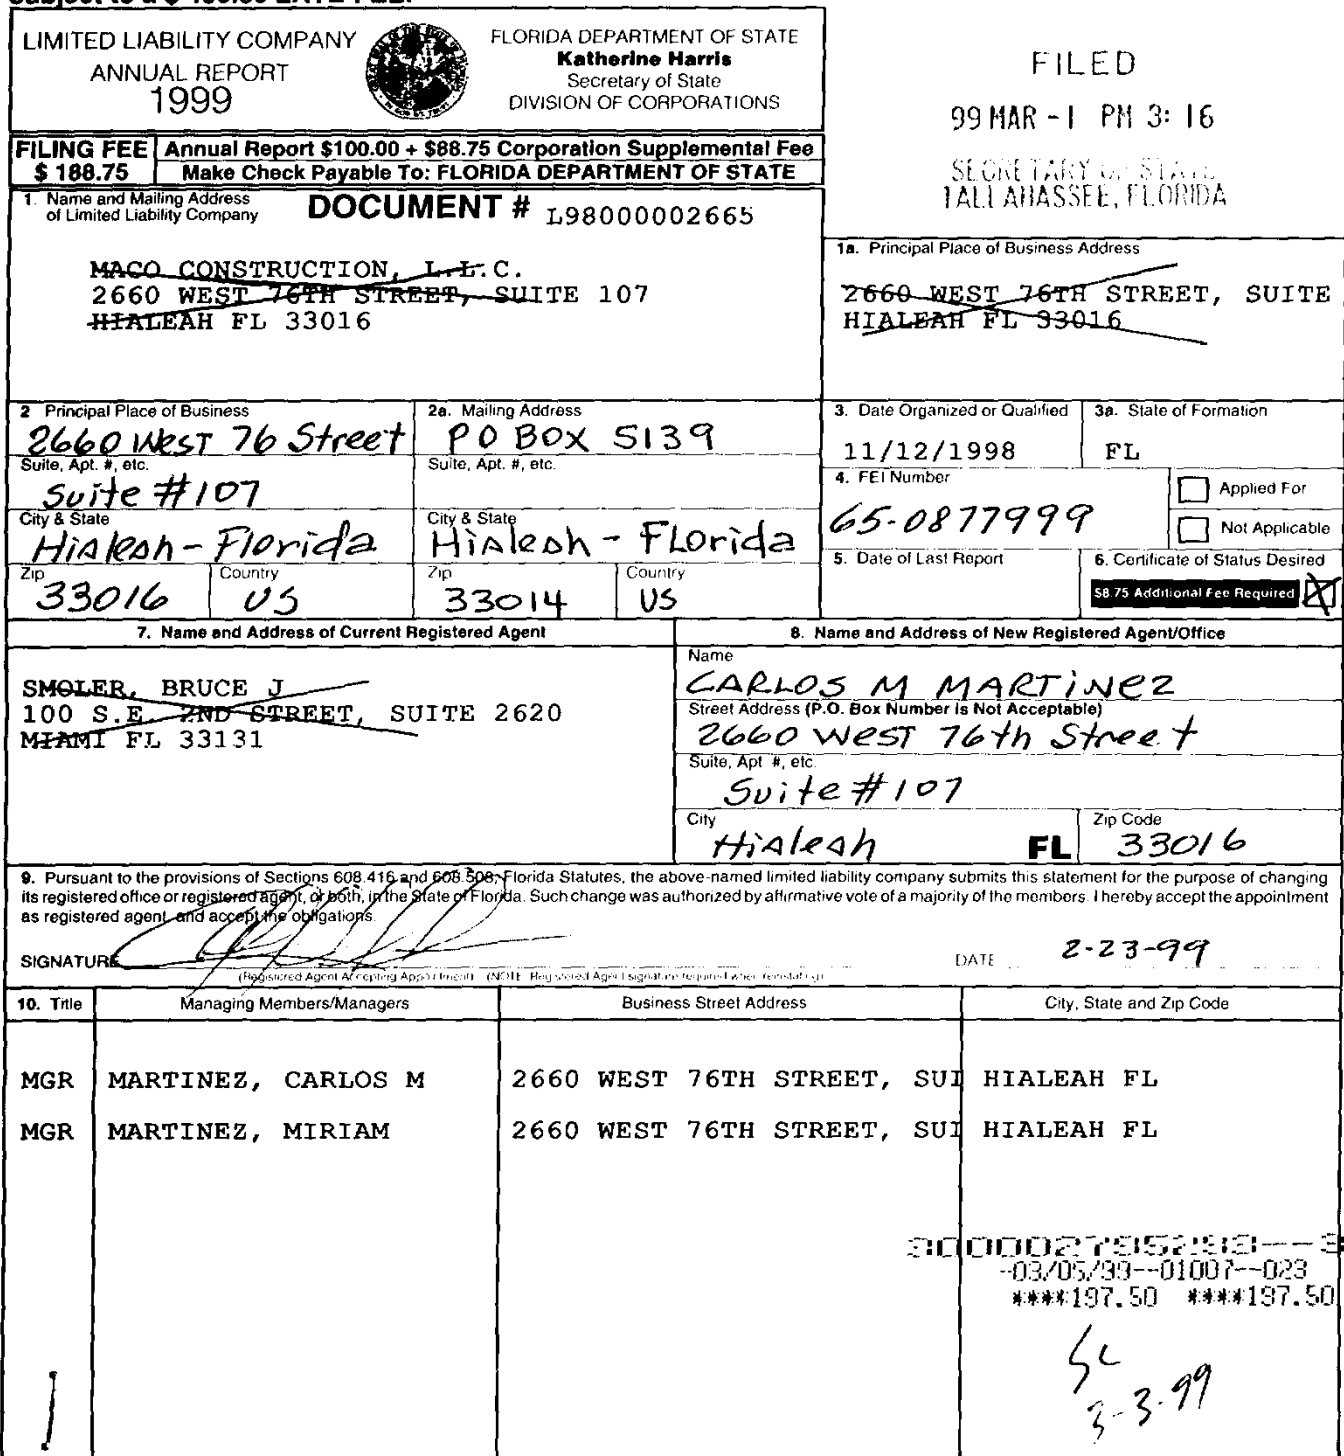 LIMITED LIABILITY COMPANY
ANNUAL REPORT
1999
FLORIDA DEPARTMENT OF STATE
Katherine Harris
Secretary of State
DIVISION OF CORPORATIONS
FILED
99 MAR -1 PM 3:16
SECRETARY OF STATE
TALLAHASSEE, FLORIDA
FILING FEE
$ 188.75
Annual Report $100.00 + $88.75 Corporation Supplemental Fee
Make Check Payable To: FLORIDA DEPARTMENT OF STATE
1. Name and Mailing Address
of Limited Liability Company
DOCUMENT # L98000002665
MACO CONSTRUCTION, L.L.C.
2660 WEST 76TH STREET, SUITE 107
HIALEAH FL 33016
1a. Principal Place of Business Address
2660 WEST 76TH STREET, SUITE
HIALEAH FL 33016
2 Principal Place of Business
2660 West 76 Street
Suite, Apt. #, etc.
Suite #107
City & State
Hialeah - Florida
Zip
33016
Country
US
2a. Mailing Address
PO BOX 5139
Suite, Apt. #, etc.
City & State
Hialeah - Florida
Zip
33014
Country
US
3. Date Organized or Qualified
11/12/1998
3a. State of Formation
FL
4. FEI Number
65-0877999
Applied For
Not Applicable
5. Date of Last Report
6. Certificate of Status Desired
$8.75 Additional Fee Required
7. Name and Address of Current Registered Agent
SMOLER, BRUCE J
100 S.E. 2ND STREET, SUITE 2620
MIAMI FL 33131
8. Name and Address of New Registered Agent/Office
Name
CARLOS M MARTINEZ
Street Address (P.O. Box Number is Not Acceptable)
2660 West 76th Street
Suite, Apt. #, etc.
Suite #107
City
Hialeah
FL
Zip Code
33016
9. Pursuant to the provisions of Sections 608.416 and 608.508, Florida Statutes, the above-named limited liability company submits this statement for the purpose of changing
its registered office or registered agent, or both, in the State of Florida. Such change was authorized by affirmative vote of a majority of the members. I hereby accept the appointment
as registered agent, and accept the obligations.
SIGNATURE
DATE 2-23-99
(Registered Agent Accepting Appointment) (NOTE: Registered Agent signature required when reinstating)
10. Title
Managing Members/Managers
Business Street Address
City, State and Zip Code
MGR MARTINEZ, CARLOS M 2660 WEST 76TH STREET, SUI HIALEAH FL
MGR MARTINEZ, MIRIAM 2660 WEST 76TH STREET, SUI HIALEAH FL
300002795293--3
-03/05/99--01007--023
****197.50 ****197.50
3-3-99